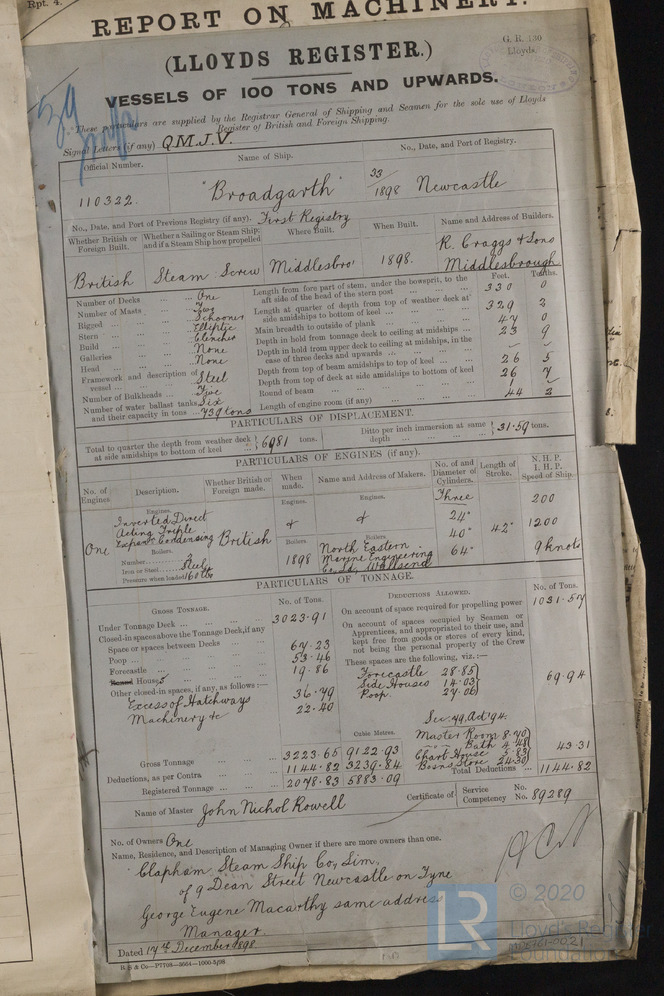 Rpt. 4.
REPORT ON MACHINERY.
G. R. 130
Lloyds.
(LLOYDS REGISTER.)
VESSELS OF 100 TONS AND UPWARDS.
These particulars are supplied by the Registrar General of Shipping and Seamen for the sole use of Lloyds
Register of British and Foreign Shipping.
Signal Letters (if any) Q.M.J.V.
Official Number. Name of Ship. No., Date, and Port of Registry.
110322. "Broadgarth" 33/1898 Newcastle
No., Date, and Port of Previous Registry (if any). First Registry
Whether British or Foreign Built. Whether a Sailing or Steam Ship and if a Steam Ship how propelled Where Built. When Built. Name and Address of Builders.
British Steam Screw Middlesbro' 1898. R. Craggs & Sons
Middlesbrough
Feet. Tenths.
Number of Decks ... One
Number of Masts ... Two
Rigged ... Schooner
Stern ... Elliptic
Build ... Clencher
Galleries ... None
Head ... None
Framework and description of vessel ... Steel
Number of Bulkheads ... Five
Number of water ballast tanks Six
and their capacity in tons ... 739 tons
Length from fore part of stem, under the bowsprit, to the
aft side of the head of the stern post ... 330 0
Length at quarter of depth from top of weather deck at
side amidships to bottom of keel ... 329 2
Main breadth to outside of plank ... 47 0
Depth in hold from tonnage deck to ceiling at midships ... 23 9
Depth in hold from upper deck to ceiling at midships, in the
case of three decks and upwards ...
Depth from top of beam amidships to top of keel ... 26 5
Depth from top of deck at side amidships to bottom of keel 26 7
Round of beam ... 1
Length of engine room (if any) ... 44 2
PARTICULARS OF DISPLACEMENT.
Total to quarter the depth from weather deck
at side amidships to bottom of keel ... 6981 tons.
Ditto per inch immersion at same
depth ... 31.59 tons.
PARTICULARS OF ENGINES (if any).
No. of Engines. Description. Whether British or Foreign made. When made. Name and Address of Makers. No. of and Diameter of Cylinders. Length of Stroke. N. H. P.
I. H. P.
Speed of Ship.
Engines. Engines. Engines.
One Inverted Direct
Acting Triple
Expan. Condensing
British
&
&
Three
24"
40"
64"
42"
200
1200
9 knots
Boilers.
Number 2
Iron or Steel Steel
Pressure when loaded 160 lb
Boilers
1898
Boilers.
North Eastern
Marine Engineering
Co. Ld. Wallsend
PARTICULARS OF TONNAGE.
GROSS TONNAGE. No. of Tons.
Under Tonnage Deck ... 3023.91
Closed-in spaces above the Tonnage Deck, if any
Space or spaces between Decks ... 67.23
Poop ... 53.46
Forecastle ... 19.86
Round Houses ... 36.79
Other closed-in spaces, if any, as follows :—
Excess of Hatchways 22.40
Machinery &c
Cubic Metres.
Gross Tonnage ... 3223.65 9122.93
Deductions, as per Contra ... 1144.82 3239.84
Registered Tonnage ... 2078.83 5883.09
DEDUCTIONS ALLOWED. No. of Tons.
On account of space required for propelling power 1031.57
On account of spaces occupied by Seamen or
Apprentices, and appropriated to their use, and
kept free from goods or stores of every kind,
not being the personal property of the Crew
These spaces are the following, viz.:—
Forecastle 28.85
Side Houses 14.03
Poop. 27.06
69.94
Sec: 79. Act '94.
Master Room 8.70
" Bath 4.48
Chart House 5.83
Boasns Store 24.30
43.31
Total Deductions ... 1144.82
Name of Master John Nichol Rowell
Certificate of Service No.
Competency No. 89289
No. of Owners One
Name, Residence, and Description of Managing Owner if there are more owners than one.
Clapham Steam Ship Co, Lim,
of 9 Dean Street Newcastle on Tyne
George Eugene Macarthy same address
Manager.
Dated 17th December 1898
R S & Co—P7708—3664—1000-5/98
LR
© 2020
Lloyd's Register
Foundation